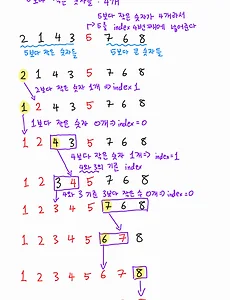 5보다 작은 숫자가 4개라서
5를 index 4번째에 넣어준다
2 1 4 3 5 7 6 8
5보다 작은 숫자들 5보다 큰 숫자들
2 1 4 3 5 7 6 8
2보다 작은 숫자 1개 ⇒ index 1
1 2 4 3 5 7 6 8
1보다 작은 숫자 0개 ⇒ index = 0
1 2 4 3 5 7 6 8
4보다 작은 숫자 1개 ⇒ index=1
4와 3의 기준 index
1 2 3 4 5 7 6 8
4와 3 기준 3보다 작은 수 0개 ⇒ index=0
1 2 3 4 5 7 6 8
1 2 3 4 5 6 7 8
1 2 3 4 5 6 7 8